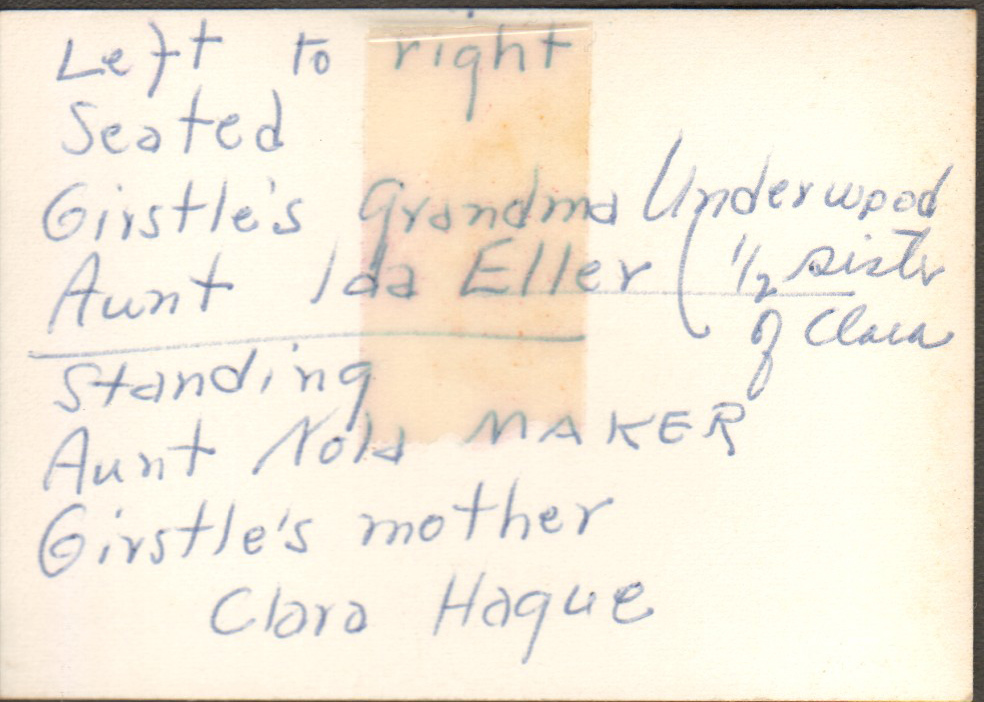 Left to right
Seated
Girstle's Grandma Underwood
Aunt Ida Eller ( 1/2 sister
of Clara
Standing
Aunt Nola MAKER
Girstle's mother
Clara Hague